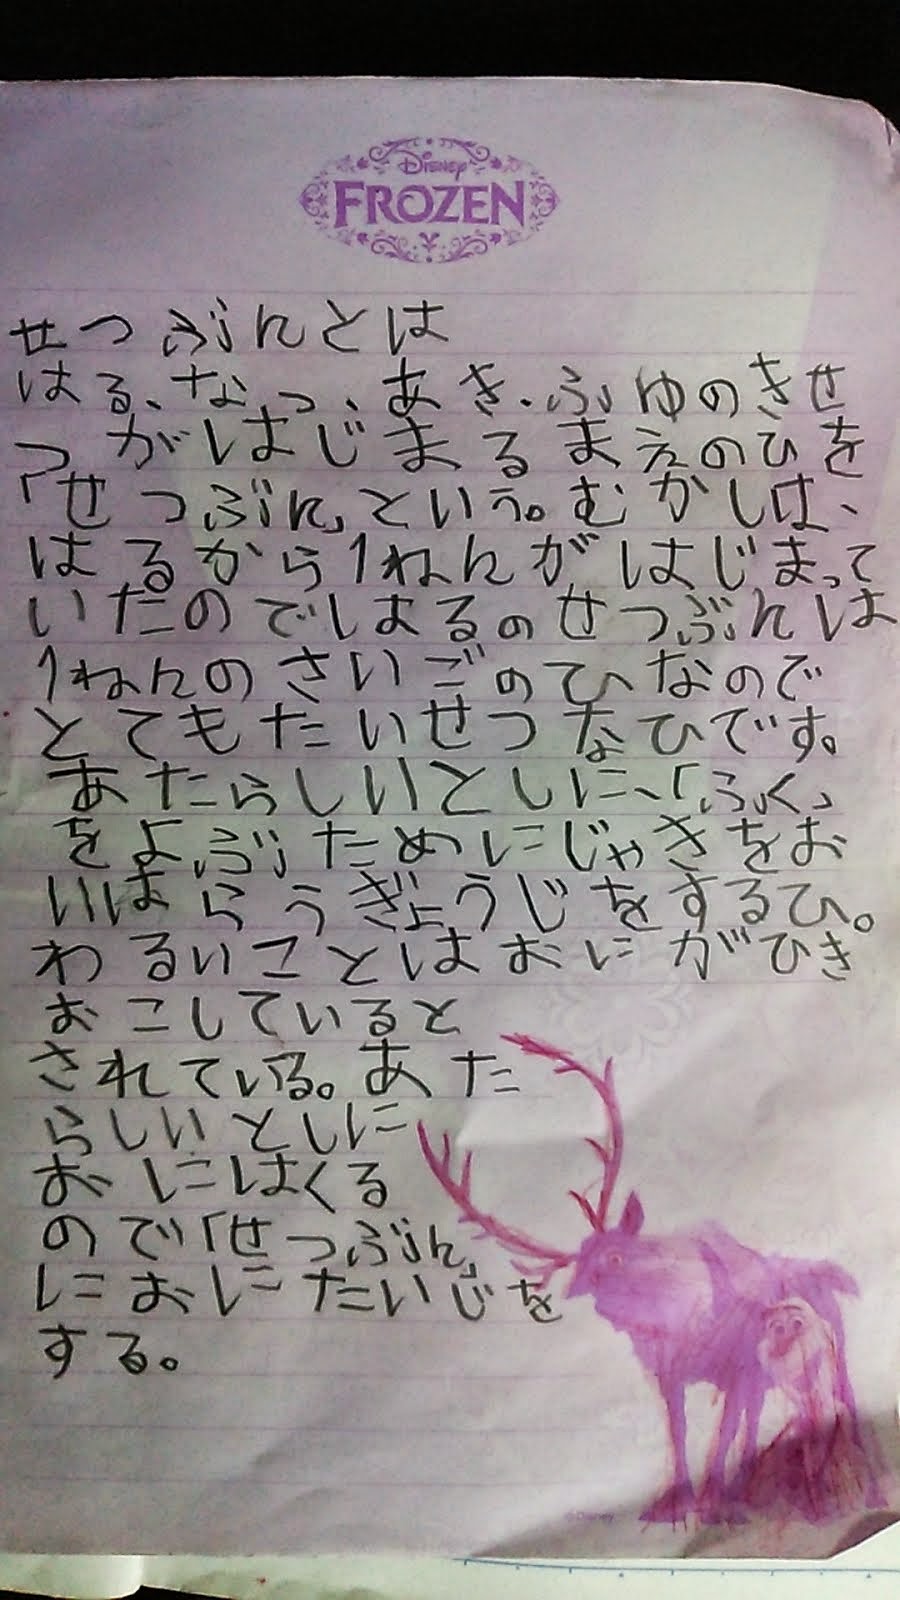 Disney
FROZEN
せつぶんとは
はる、なつ、あき、ふゆのきせ
つがはじまるまえのひを
「せつぶん」という。むかしは、
はるから1ねんがはじまって
いたのではるのせつぶんは
1ねんのさいごのひなので
とてもたいせつなひです。
あたらしいとしに、「ふく」
をよぶためにじゃきをお
いはらうぎょうじをするひ。
わるいことはおにがひき
おこしていると
されている。あた
らしいとしに
おにはくる
ので「せつぶん」
におにたいじを
する。
©Disney